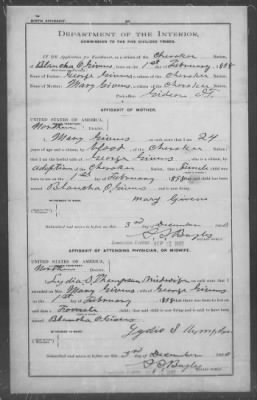 BIRTH AFFIDAVIT.
DEPARTMENT OF THE INTERIOR,
COMMISSION TO THE FIVE CIVILIZED TRIBES.
IN RE Application for Enrollment, as a citizen of the Cherokee Nation,
of Blancha O Givens born on the 1st day of February, 1898
Name of Father: George Givens a citizen of the Cherokee Nation.
Name of Mother: Mary Givens a citizen of the Cherokee Nation.
Gideon I.T.
AFFIDAVIT OF MOTHER.
UNITED STATES OF AMERICA,
Northern District.
I, Mary Givens, on oath state that I am 24
years of age and a citizen by blood of the Cherokee Nation;
that I am the lawful wife of George Givens, who is a citizen, by
adoption of the Cherokee Nation; that a female child was
born to me on 1st day of February, 1898; that said child has been named
Blancha O Givens, and is now living.
Mary Givens
Subscribed and sworn to before me this 3rd day of December
AFFIDAVIT OF ATTENDING PHYSICIAN, OR MIDWIFE.
UNITED STATES OF AMERICA,
Northern District.
I, Lydia S Thompson, Midwife, on oath state that I
attended on Mrs. Mary Givens, wife of George Givens
on the 1st day of February, 1898; that there was born to her on said
date a Female child; that said child is now living and is said to have been named
Blancha O Givens
Subscribed and sworn to before me this 3rd day of December